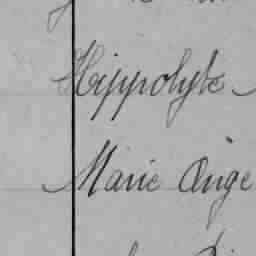 Hippolyte
Marie Ange